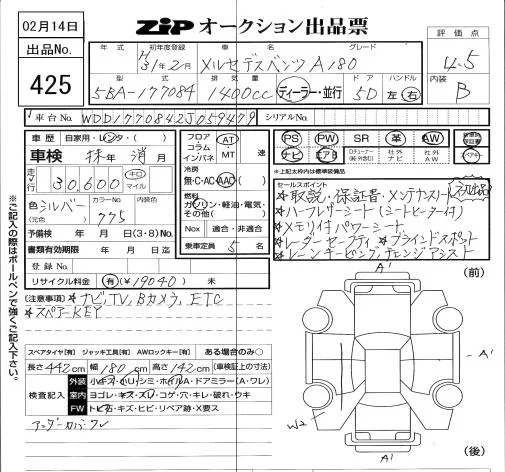 02月14日
ZIP オークション出品票
出品No.
425
評価点
4.5
内装
B
年式 初年度登録 車名 グレード
H31年2月 メルセデスベンツ A180
型式 排気量 ドア ハンドル
5BA-177084 1400cc ディーラー・並行 5D 左・右
車台No. WDD1770842J059479 シリアルNo.
車歴 自家用・レンタ・( )
車検 抹年消月
走行 30,600 キロ マイル
色 シルバー (元色) カラーNo. 775 内装色
予備検 年 月 日(3・8)No.
書類有効期限 年 月 日迄
登録No.
リサイクル料金 有(¥19040) 未
フロア コラム インパネ AT・MT 速
冷房 無・C・AC・AAC
燃料 ガソリン・軽油・電気・その他( )
Nox 適合・非適合
乗車定員 5名
PS PW SR 革 AW
ナビ エアB 社外ナビ 社外AW
セールスポイント
★取説・保証書・メンテナンスノート
★ハーフレザーシート(シートヒーター付)
★メモリ付パワーシート
★レーダーセーフティ ★ブラインドスポット
★レーンキーピング,チェンジアシスト
(注意事項) ★ナビ,TV,Bカメラ,ETC
★スペアーKEY
スペアタイヤ[有] ジャッキ工具[有] AWロックキー[有] ある場合のみ○
長さ442cm 幅180cm 高さ142cm (車検証上の寸法)
検査記入
外装 小キズ・小ハリ・シミ・ホイル・ドアミラー(A・ワレ)
室内 ヨゴレ・キズ・スレ・コゲ・穴・キレ・破れ・ウキ
FW トビ石・キズ・ヒビ・リペア跡・X要ス
アンダーカバーワレ
※ご記入の際はボールペンで強くご記入下さい。
A'
(前)
A'
W2
A'
(後)